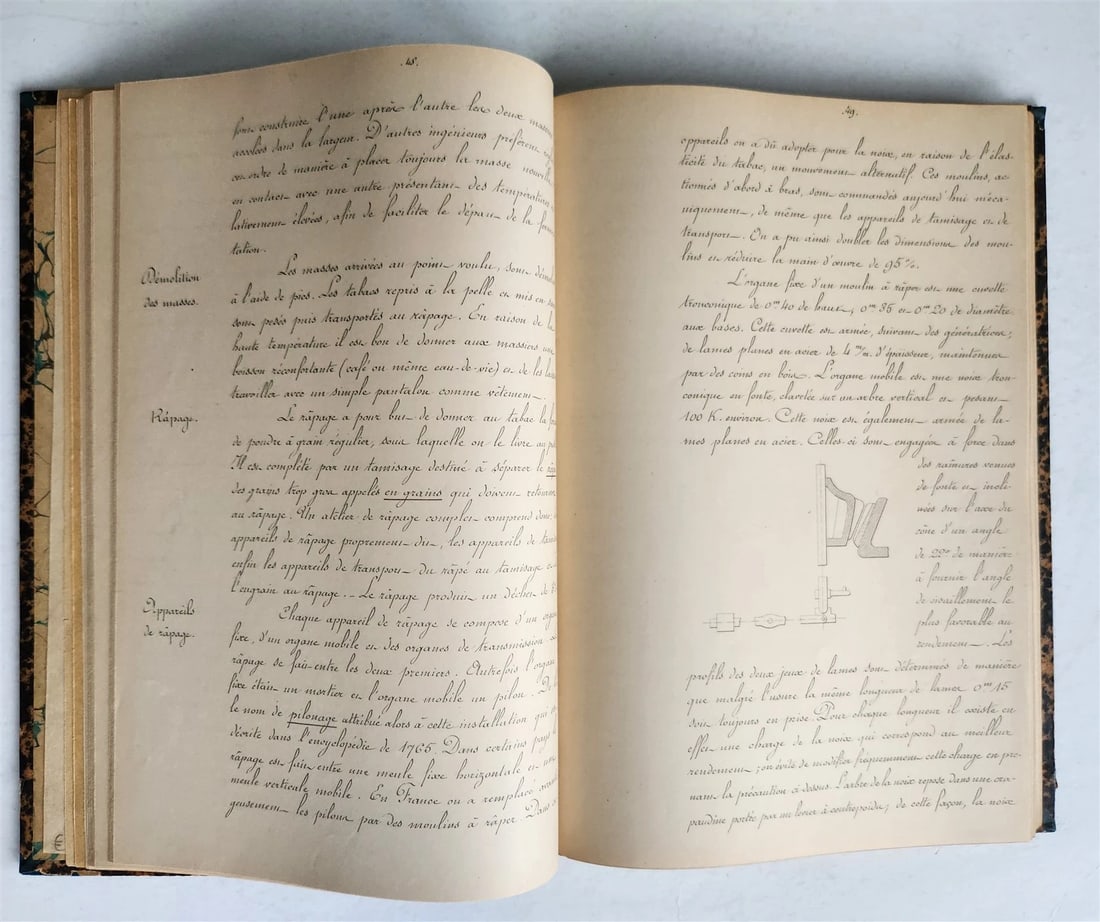 48.
font construire l'une après l'autre les deux masses
accolées dans la largeur. D'autres ingénieurs préfèrent
cet ordre de manière à placer toujours la masse nouvelle
en contact avec une autre présentant des températures
lativement élevées, afin de faciliter le départ de la fermen
tation.
Démolition
des masses.
Les masses arrivées au point voulu, sont démol
à l'aide de pics. Les tabacs repris à la pelle et mis en
sont pesés puis transportés au râpage. En raison de la
haute température il est bon de donner aux massiers une
boisson réconfortante (café ou même eau-de-vie) et de les
travailler avec un simple pantalon comme vêtement.
Râpage.
Le râpage a pour but de donner au tabac la
de poudre à grain régulier, sous laquelle on le livre au
Il est complété par un tamisage destiné à séparer le
des grains trop gros appelés en grains qui doivent retourner
au râpage. Un atelier de râpage complet comprend donc:
appareils de râpage proprement dit, les appareils de
enfin les appareils de transport du râpé au tamisage et
l'engrain au râpage. - Le râpage produit un déchet de
Appareils
de râpage.
Chaque appareil de râpage se compose d'un organe
fixe, d'un organe mobile et des organes de transmission.
râpage se fait entre les deux premiers. Autrefois l'organe
fixe était un mortier et l'organe mobile un pilon. De
le nom de pilonage attribué alors à cette installation qui est
décrite dans l'encyclopédie de 1765. Dans certains pays le
râpage est fait entre une meule fixe horizontale et une
meule verticale mobile. En France on a remplacé avanta
geusement les pilons par des moulins à râper. Dans
49.
appareils on a dû adopter pour la noix, en raison de l'élas-
ticité du tabac, un mouvement alternatif. Ces moulins, ac-
tionnés d'abord à bras, sont commandés aujourd'hui méca-
niquement, de même que les appareils de tamisage et de
transport. On a pu ainsi doubler les dimensions des mou-
lins et réduire la main d'œuvre de 95 %.
L'organe fixe d'un moulin à râper est une cuvette
tronconique de 0m40 de haut, 0m35 et 0m20 de diamètre
aux bases. Cette cuvette est armée, suivant des génératrices,
de lames planes en acier de 4 m/m. d'épaisseur, maintenues
par des coins en bois. L'organe mobile est une noix tron-
conique en fonte, clavetée sur un arbre vertical et pesant
100 K. environ. Cette noix est également armée de la-
mes planes en acier. Celles-ci sont engagées à force dans
des rainures venues
de fonte et incli-
nées sur l'axe du
cône d'un angle
de 22° de manière
à fournir l'angle
de cisaillement le
plus favorable au
rendement. Les
profils des deux jeux de lames sont déterminés de manière
que malgré l'usure la même longueur de lames 0m15
soit toujours en prise. Pour chaque longueur il existe en
effet une charge de la noix qui correspond au meilleur
rendement; on évite de modifier fréquemment cette charge en pre-
nant la précaution ci dessus. L'arbre de la noix repose dans une cra-
paudine portée par un levier à contrepoids; de cette façon, la noix